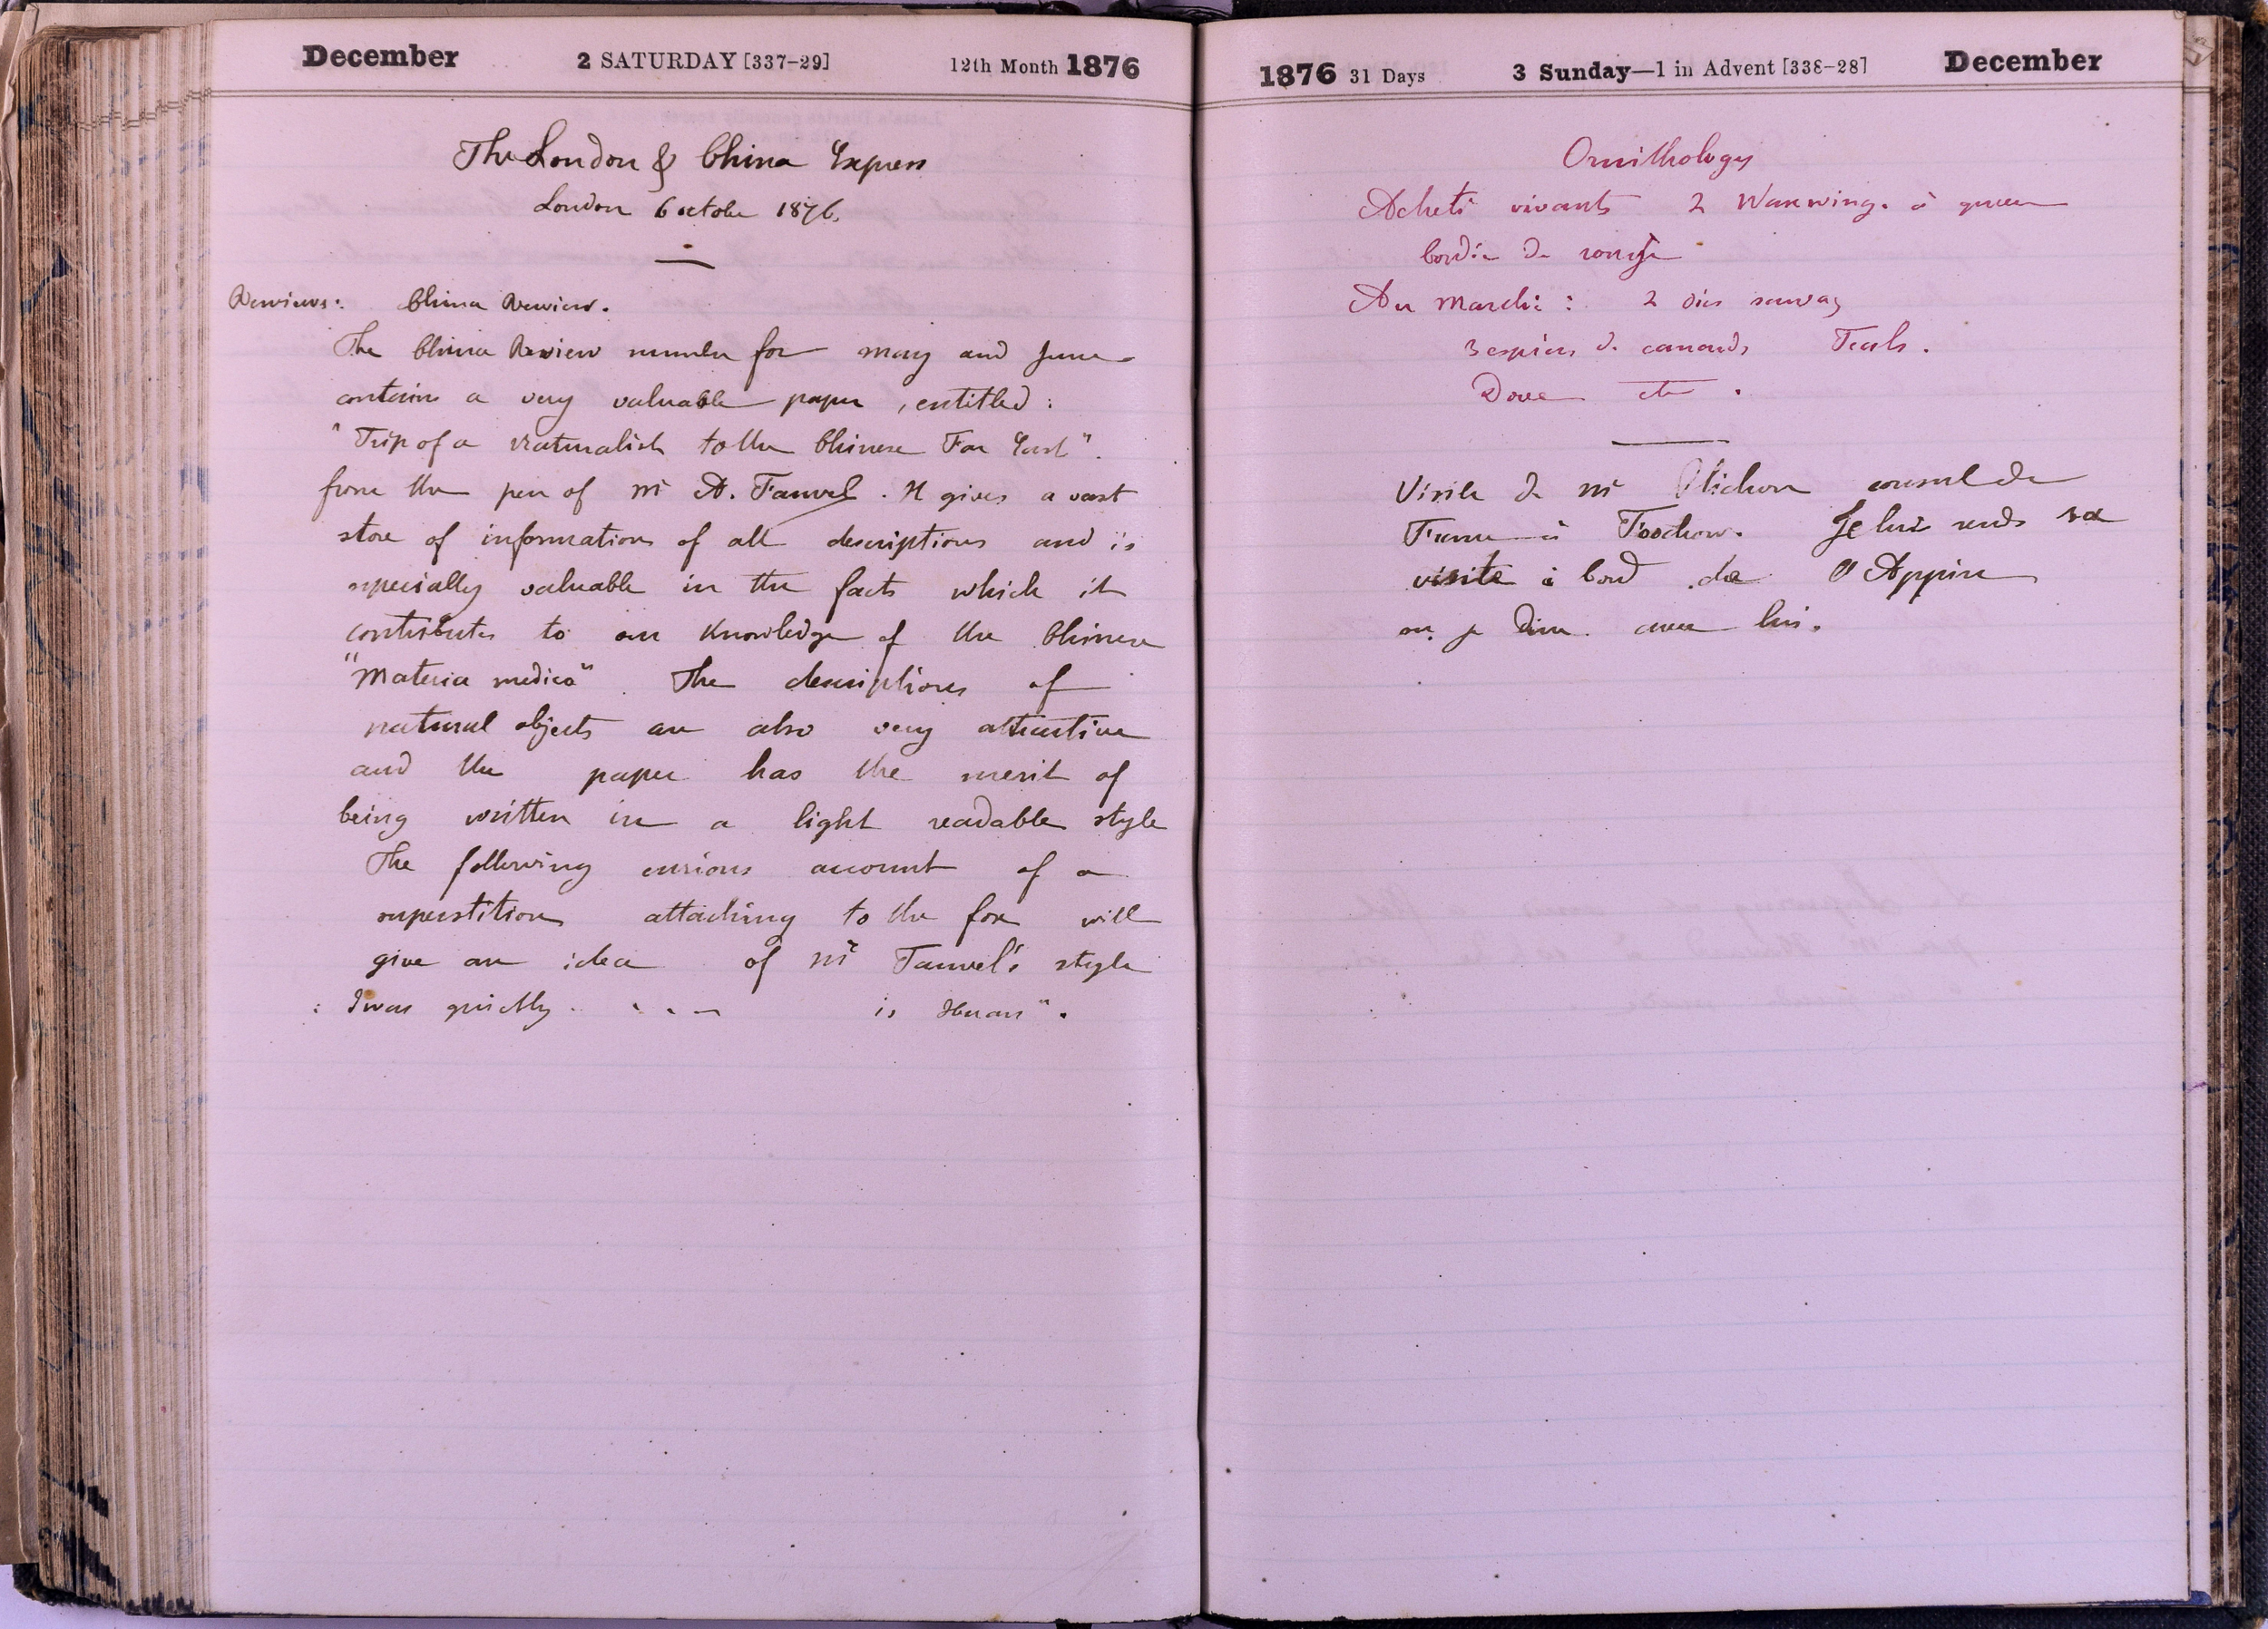 December 2 SATURDAY [337-29] 12th Month 1876
The London & China Express
London 6 octobe 1876.
Reviews: China Review.
The China Review number for may and June
contains a very valuable paper, entitled:
"Trip of a Naturalist to the Chinese Far East".
from the pen of Mr A. Fauvel. It gives a vast
store of information of all descriptions and is
specially valuable in the facts which it
contributes to our Knowledge of the Chinese
"Materia medica". The descriptions of
natural objects are also very attractive
and the paper has the merit of
being written in a light readable style
The following curious account of a
superstition attaching to the fox will
give an idea of Mr Fauvel's style
: I was quickly . . . . is Human".
1876 31 Days 3 Sunday—1 in Advent [338-28] December
Ornithology
Acheté vivants 2 Waxwings à queue
bordée de rouge
Au Marché : 2 oies sauvag
3 espèces de canards Teals.
Dove etc.
Visite de Mr consul de
France à Foochow. Je lui rends sa
visite à bord de
où je dine avec lui.